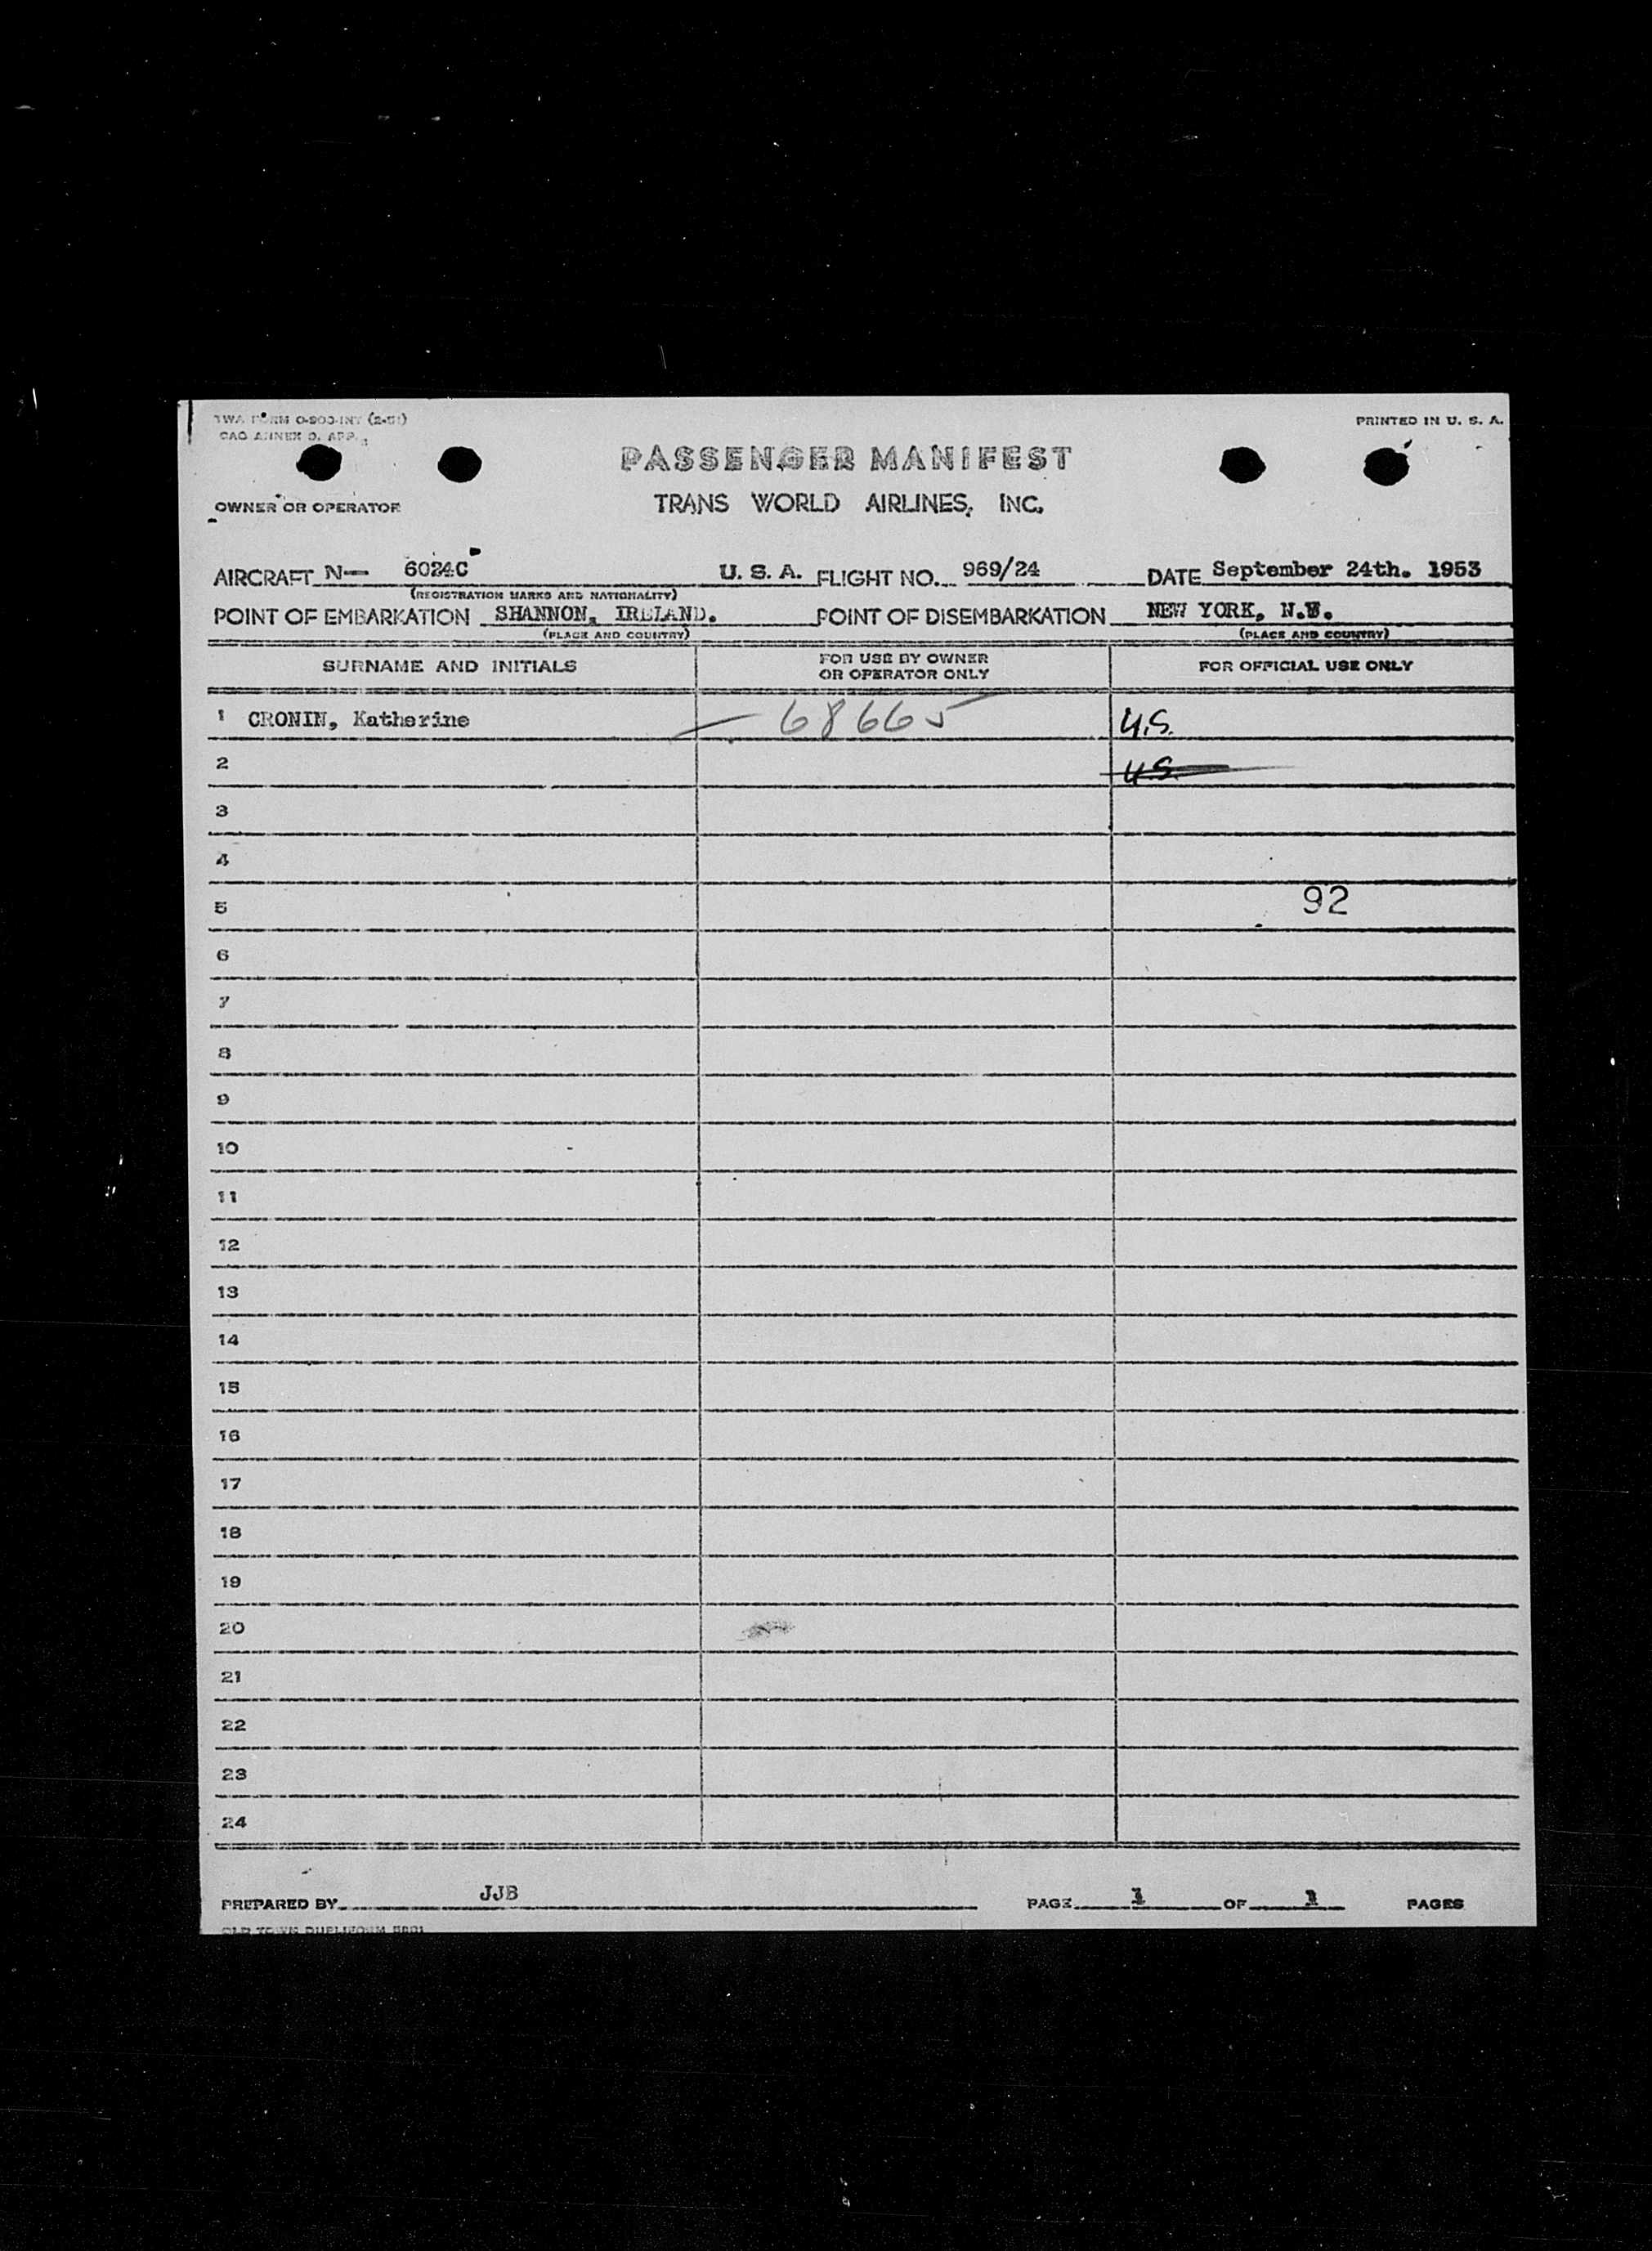 TWA FORM O-900-INT (2-51)
PRINTED IN U. S. A.
PASSENGER MANIFEST
OWNER OR OPERATOR
TRANS WORLD AIRLINES, INC.
AIRCRAFT N— 6024C U. S. A. FLIGHT NO. 969/24 DATE September 24th. 1953
(REGISTRATION MARKS AND NATIONALITY)
POINT OF EMBARKATION SHANNON, IRELAND. POINT OF DISEMBARKATION NEW YORK, N.Y.
(PLACE AND COUNTRY) (PLACE AND COUNTRY)
SURNAME AND INITIALS FOR USE BY OWNER OR OPERATOR ONLY FOR OFFICIAL USE ONLY
1 CRONIN, Katherine 68665 U.S.
2 U.S.
3
4
5 92
6
7
8
9
10
11
12
13
14
15
16
17
18
19
20
21
22
23
24
PREPARED BY JJB PAGE 1 OF 1 PAGES